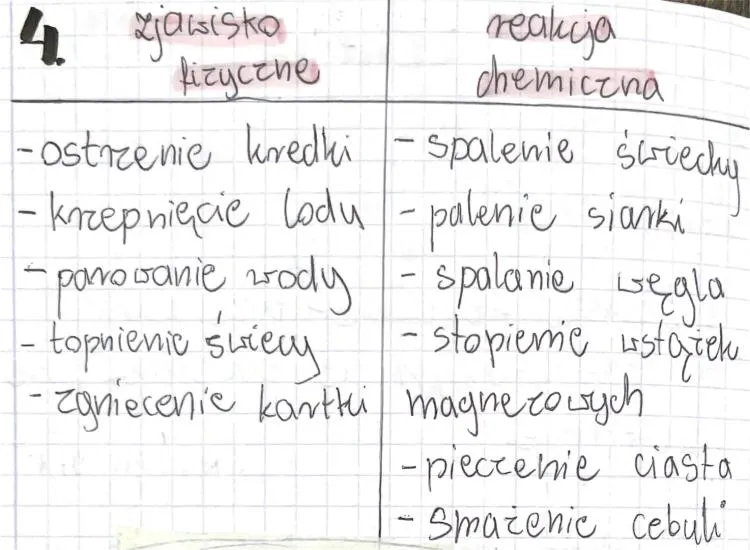 4.
zjawisko
fizyczne
reakcja
chemiczna
- ostrzenie kredki
- krzepnięcie lodu
- parowanie wody
- topnienie świecy
- zgniecenie kartki
- spalenie świechy
- palenie siarki
- spalanie węgla
- stopienie wstążek
magnezowych
- pieczenie ciasta
- smażenie cebuli